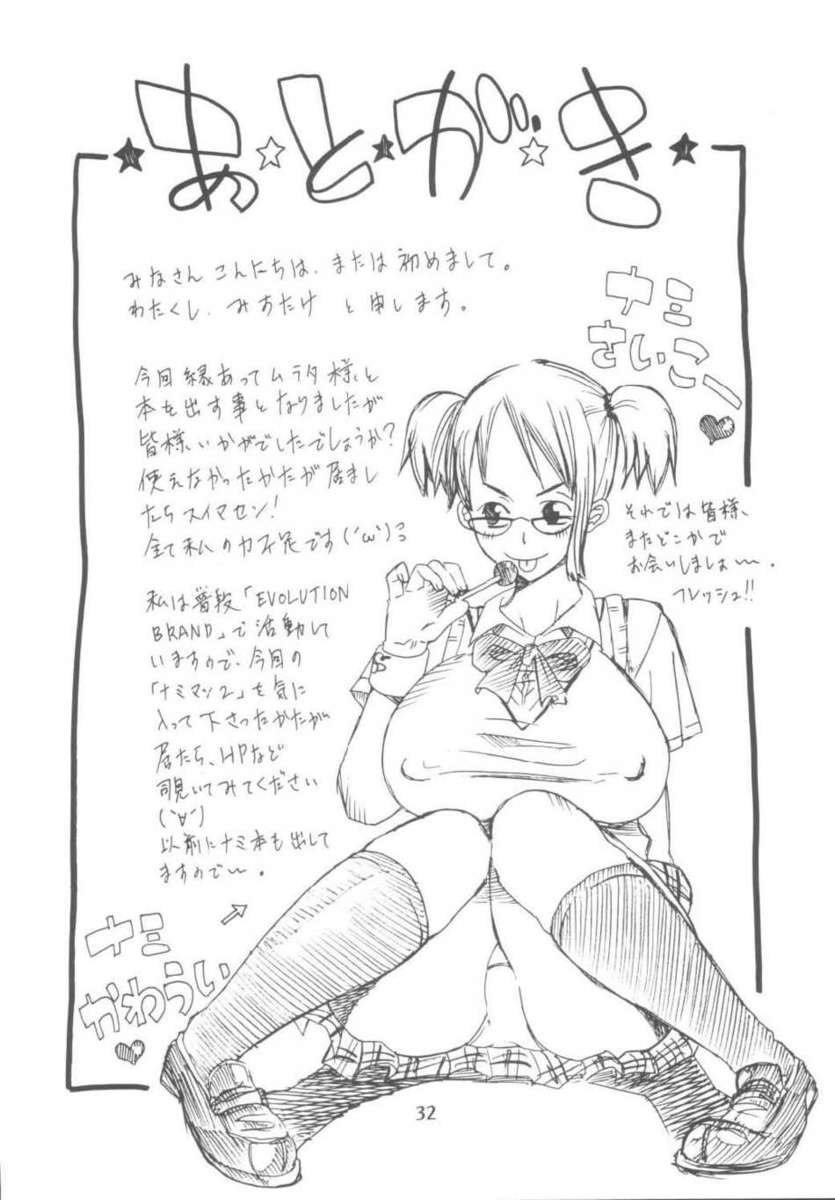 あ☆と★が☆き
みなさん こんにちは、または初めまして。
わたくし、みすたけ と申します。
今回縁あってムラタ様と
本を出す事となりましたが
皆様いかがでしたでしょうか?
使えなかったかたが居まし
たらスイマセン!
全て私の力不足です(´ω`)
私は普段「EVOLUTION
BRAND」で活動して
いますので、今回の
「ナミマン2」を気に
入って下さったかたが
居たら、HPなど
覗いてみてください
(´∀`)
以前にナミ本も出して
ますので〜。
ナミ
さいこー
それでは皆様、
またどこかで
お会いしましょ〜。
フレッシュ!!
ナミ
かわうぃい
32